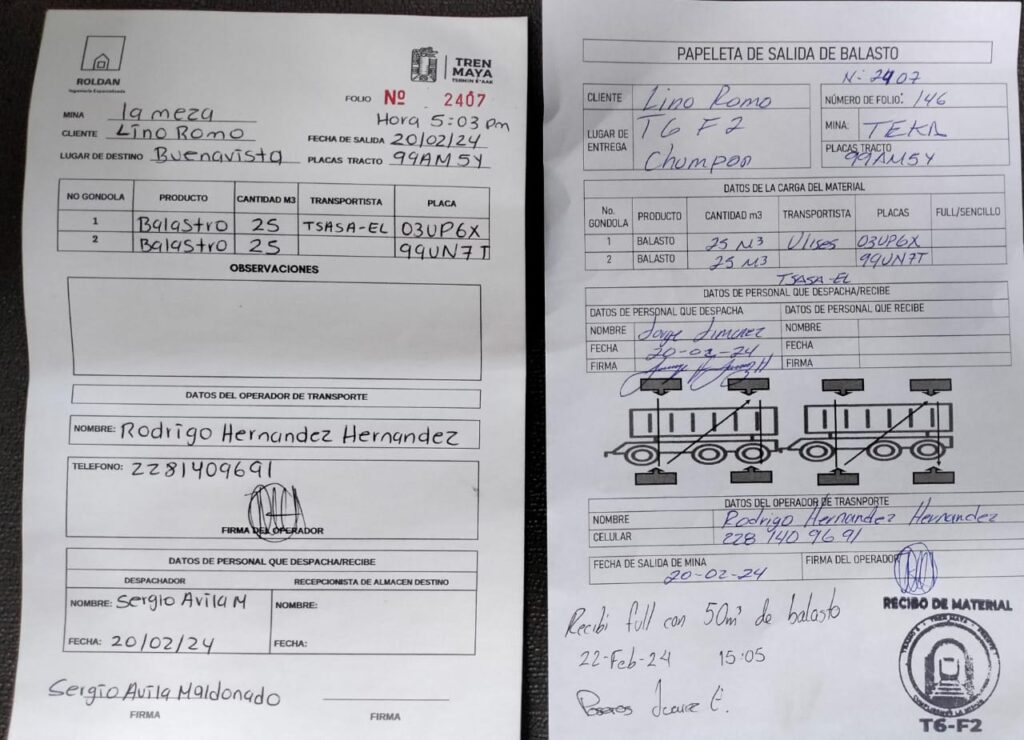 ROLDAN
Ingeniería Especializada
TREN
MAYA
TERMIN E'AAK
FOLIO Nº 2407
Hora 5:03 pm
MINA la meza
CLIENTE Lino Romo
FECHA DE SALIDA 20/02/24
LUGAR DE DESTINO Buenavista PLACAS TRACTO 99AM5Y
NO GONDOLA PRODUCTO CANTIDAD M3 TRANSPORTISTA PLACA
1 Balastro 25 TSASA-EL 03UP6X
2 Balastro 25 99UN7T
OBSERVACIONES
DATOS DEL OPERADOR DE TRANSPORTE
NOMBRE: Rodrigo Hernandez Hernandez
TELEFONO: 2281409691
FIRMA DEL OPERADOR
DATOS DE PERSONAL QUE DESPACHA/RECIBE
DESPACHADOR RECEPCIONISTA DE ALMACEN DESTINO
NOMBRE: Sergio Avila M NOMBRE:
FECHA: 20/02/24 FECHA:
Sergio Avila Maldonado
FIRMA FIRMA
PAPELETA DE SALIDA DE BALASTO
N: 2407
CLIENTE Lino Romo
NÚMERO DE FOLIO: 146
LUGAR DE ENTREGA T6 F2
Chumpon
MINA: TEKAL
PLACAS TRACTO
99AM5Y
DATOS DE LA CARGA DEL MATERIAL
No. GONDOLA PRODUCTO CANTIDAD m3 TRANSPORTISTA PLACAS FULL/SENCILLO
1 BALASTO 25 M3 Ulises 03UP6X
2 BALASTO 25 M3 99UN7T
TSASA-EL
DATOS DE PERSONAL QUE DESPACHA/RECIBE
DATOS DE PERSONAL QUE DESPACHA DATOS DE PERSONAL QUE RECIBE
NOMBRE Jorge Jimenez NOMBRE
FECHA 20-02-24 FECHA
FIRMA FIRMA
DATOS DEL OPERADOR DE TRASNPORTE
NOMBRE Rodrigo Hernandez Hernandez
CELULAR 228 140 96 91
FECHA DE SALIDA DE MINA FIRMA DEL OPERADOR
20-02-24
RECIBO DE MATERIAL
Recibi full con 50m³ de balasto
22-Feb-24 15:05
Juarez E.
TREN MAYA
T6-F2